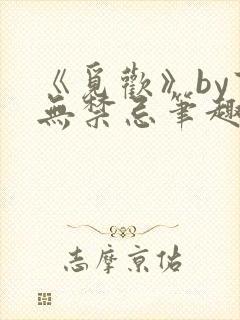 《覓歡》by
無禁忌筆趣
志摩京佑